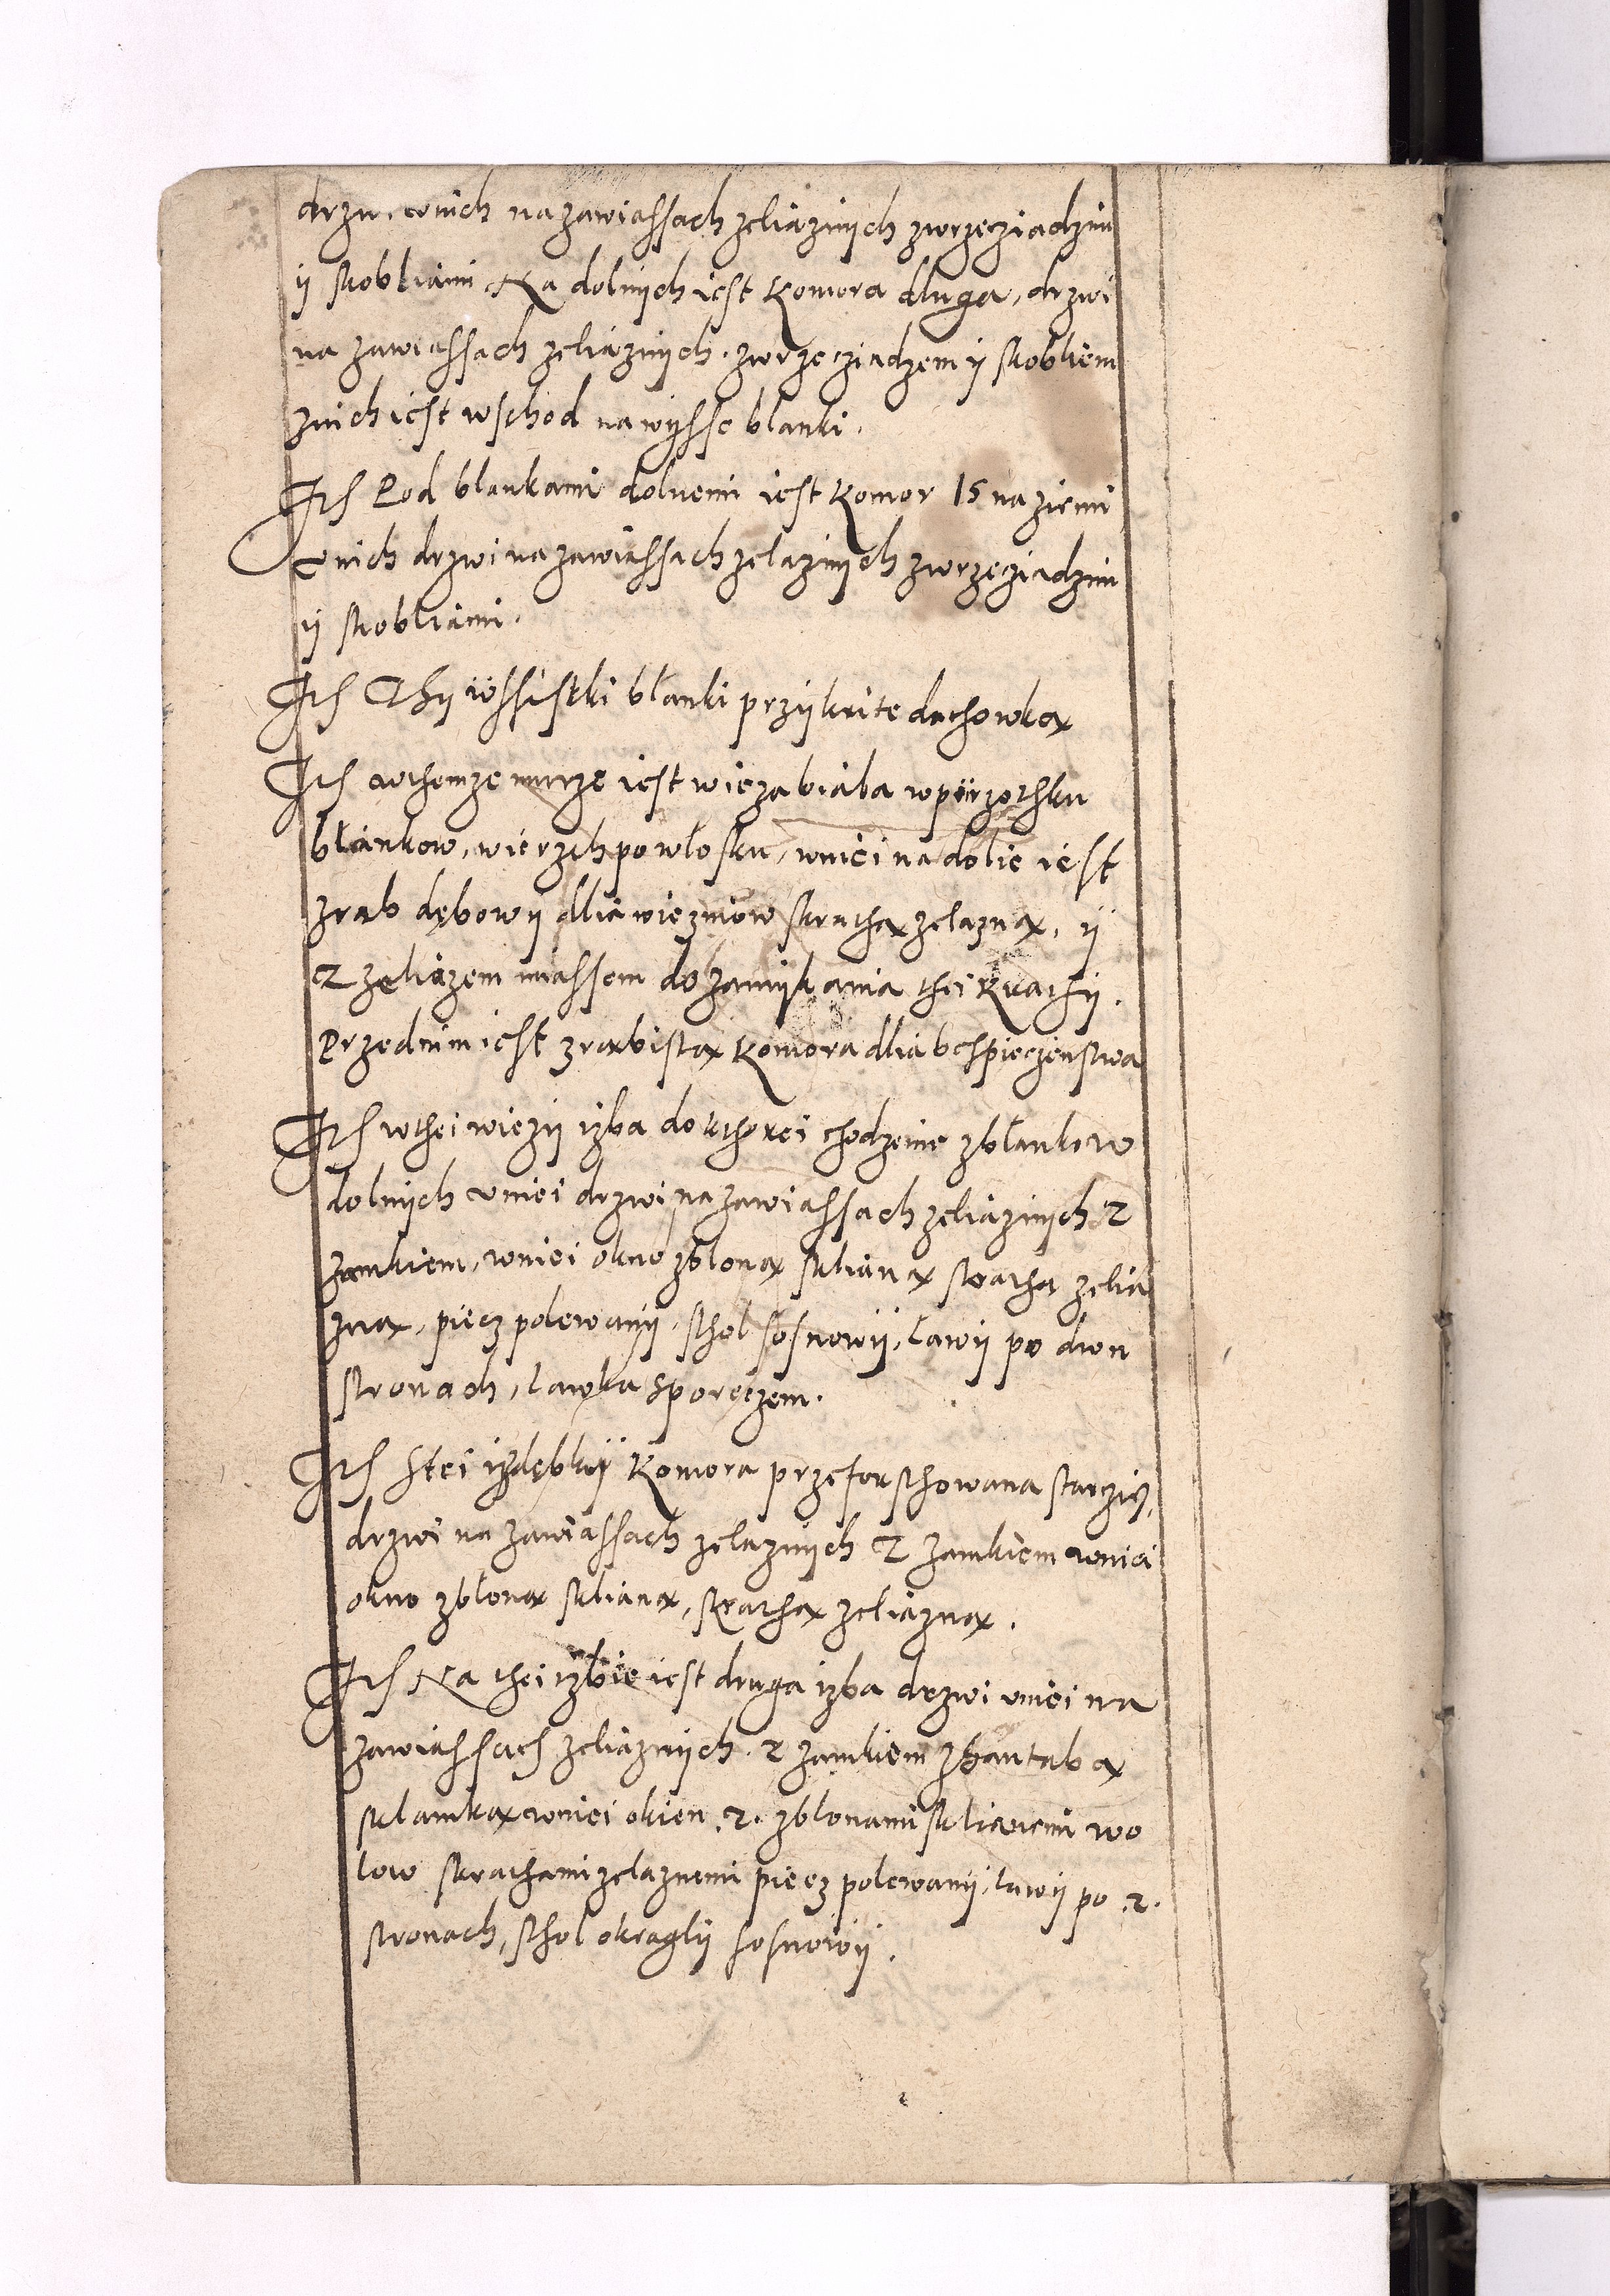 drzw. wnich na zawiassach zeliaznych zwrzecziadzmi
ÿ skobliami Na dolnych iest Komora dluga, drzwi
na zawiassach zeliaznych. zwrzecziadzem ÿ skobliem
znich iest wschod na wÿsse blanki.
Ith Pod blankami dolnemi iest Komor 15 na ziemi
vnich drzwi na zawiassach zelaznÿch zwrzecziadzmi
ÿ skobliami.
Ith Thÿ wssistki blanki przÿkrite dachowką
Ith wthemze murze iest wieza biała
błankow, wierzch powłosku, wniei na dolie iest
zrab dębowÿ dlia wiezniow skrathą zelazną, ÿ
2 zeliazem miassem do zamÿkania thei Krathÿ.
Przednim iest zrąbistą Komora dlia bespieczenstwa
Ith wthei wiezÿ izba do kthorei chodzenie zbłankow
dolnÿch vniei drzwi na zawiassach zeliaznÿch 2
zamkiem, wniei okno zbloną sklianą skratha zelia
zną, piecz polewanÿ, sthol sosnowÿ, ławÿ po dwu
stronach, ławka sporeczem.
Ith Stei izdębkÿ Komora przeforsthowana starczicz,
drzwi na zawiassach zelaznÿch 2 zamkiem wniei
okno zbłoną sklianą, skrathą zeliazną.
Ith Na thei izbie iest druga izba drzwi vniei na
zawiassach zeliaznÿch. 2 zamkiem zhantabą
sklamką wniei okien .2. zblonami sklianemi wo
low skrathami zelaznemi piecz polewanÿ, ławÿ po .2.
stronach, sthol okraglÿ sosnowÿ.